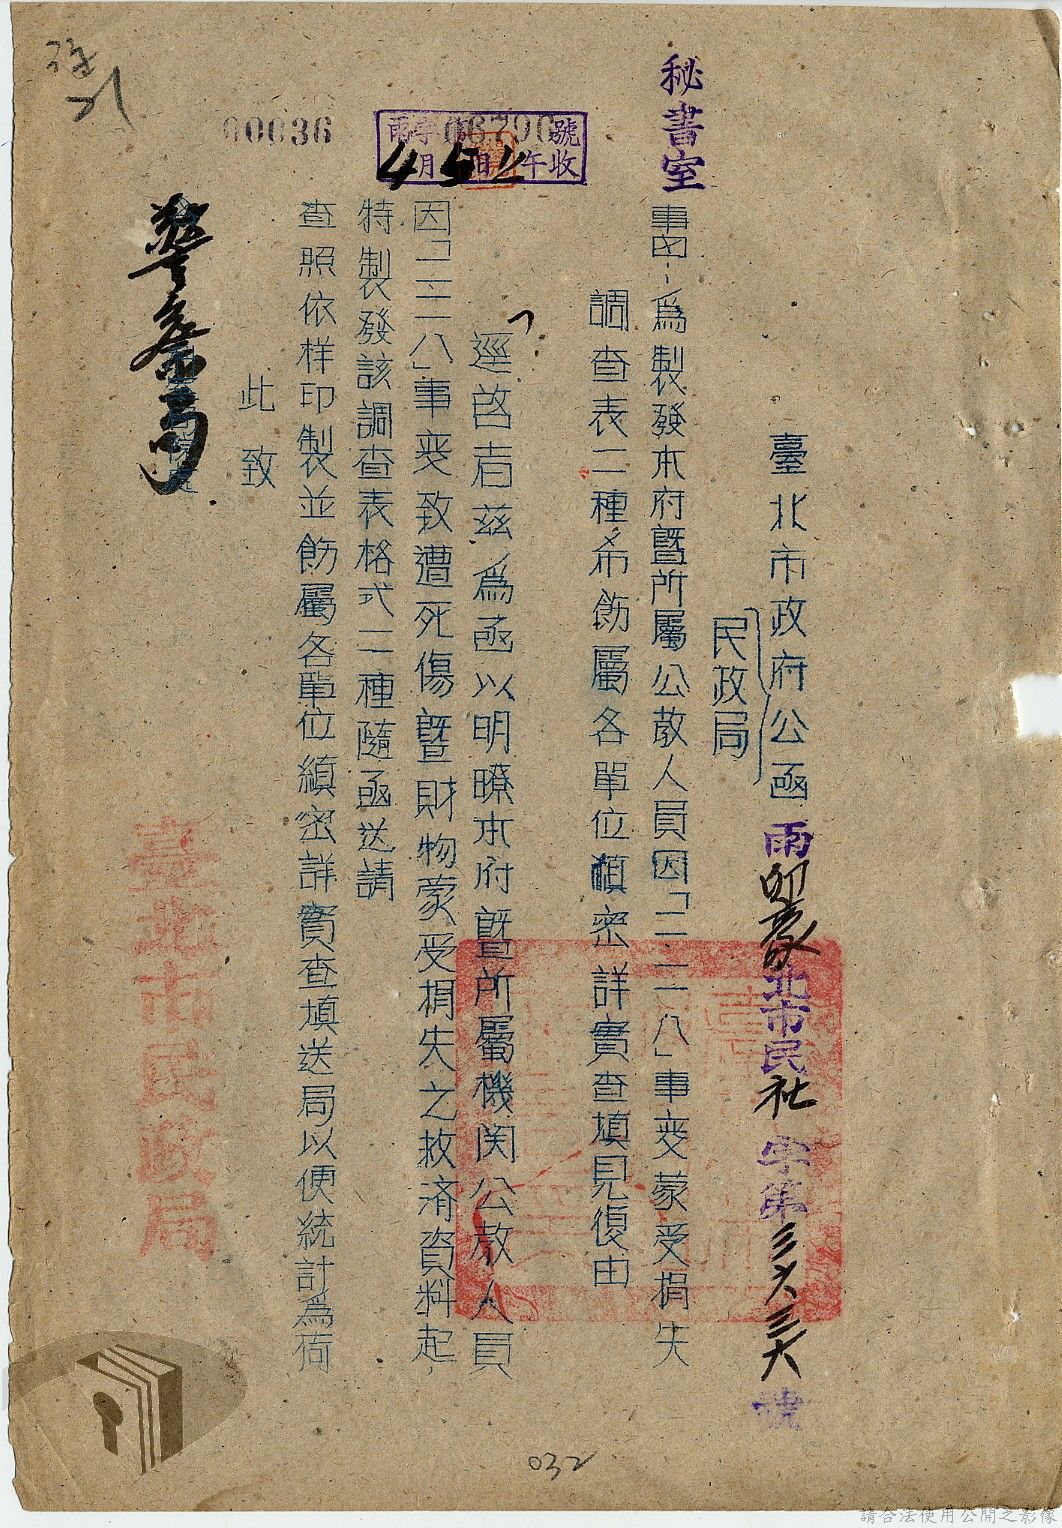 臺北市政府公函
民政局
雨卯豪北市民社字第三六三六號
秘書室
事由:為製發本府暨所屬公教人員因「二二八」事變蒙受損失
調查表二種希飭屬各單位縝密詳實查填見復由
逕啓者茲為函以明瞭本府暨所屬機関公教人員
因「二二八」事變致遭死傷暨財物蒙受損失之救济資料起,
特製發該調查表格式二種隨函送請
查照依样印製並飭屬各單位縝密詳實查填送局以便統計為荷
此致
警察局
臺北市民政局
00036
號
4月5日午收
032
請合法使用公開之影像